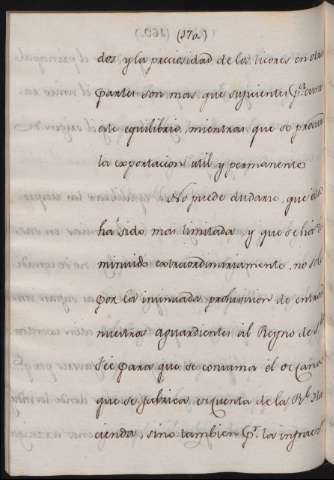 (170.)
dos, y la preciosidad de los licores en otras
partes son mas que suficientes
este equilibrio, mientras que se procura
la exportacion util y permanente.
No puede dudarse, que esta
ha sido mas limitada y que se ha di
minuido extraordinariamente, no solo
por la insinuada prohivision de entrar
nuestros aguardientes al Reyno de
para que se consuma el de Caña
que se fabrica de cuenta de la Rl. Ha
cienda, sino tambien pr. las